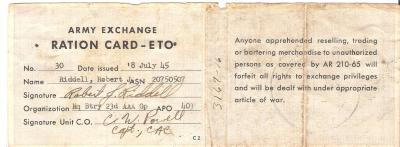 ARMY EXCHANGE
• RATION CARD-ETO •
No. 30 Date issued 18 July 45
Name Riddell, Robert J ASN 20750507
Signature Robert J. Riddell
Organization Hq Btry 23d AAA Gp APO 403
Signature Unit C.O. C W Powell
Capt., CAC
C 2
3167-6
Anyone apprehended reselling, trading
or bartering merchandise to unauthorized
persons as covered by AR 210-65 will
forfeit all rights to exchange privileges
and will be dealt with under appropriate
article of war.